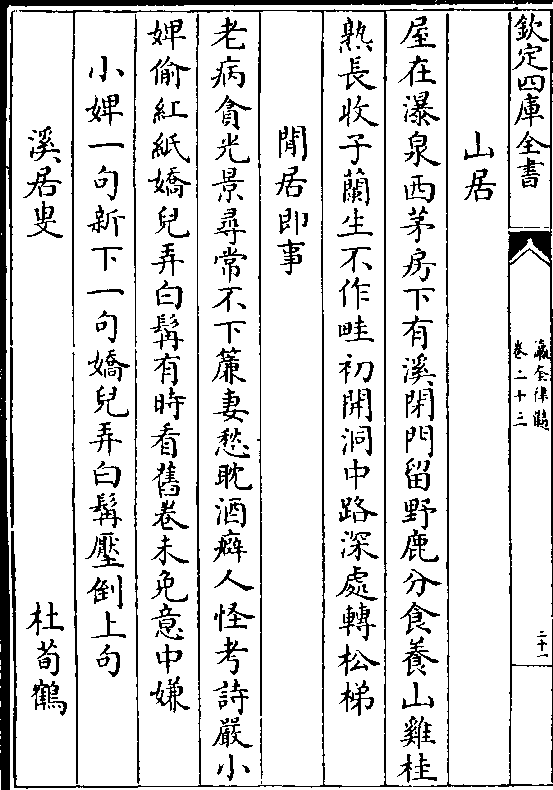 欽定四庫全書
瀛奎律髓
卷二十三
二十一
山居
屋在瀑泉西茅房下有溪閉門留野鹿分食養山雞桂
熟長收子蘭生不作畦初開洞中路深處轉松梯
閒居即事
老病貪光景尋常不下簾妻愁耽酒癖人怪考詩嚴小
婢偷紅紙嬌兒弄白髯有時看舊卷未免意中嫌
小婢一句新下一句嬌兒弄白髯壓倒上句
溪居叟　杜荀鶴